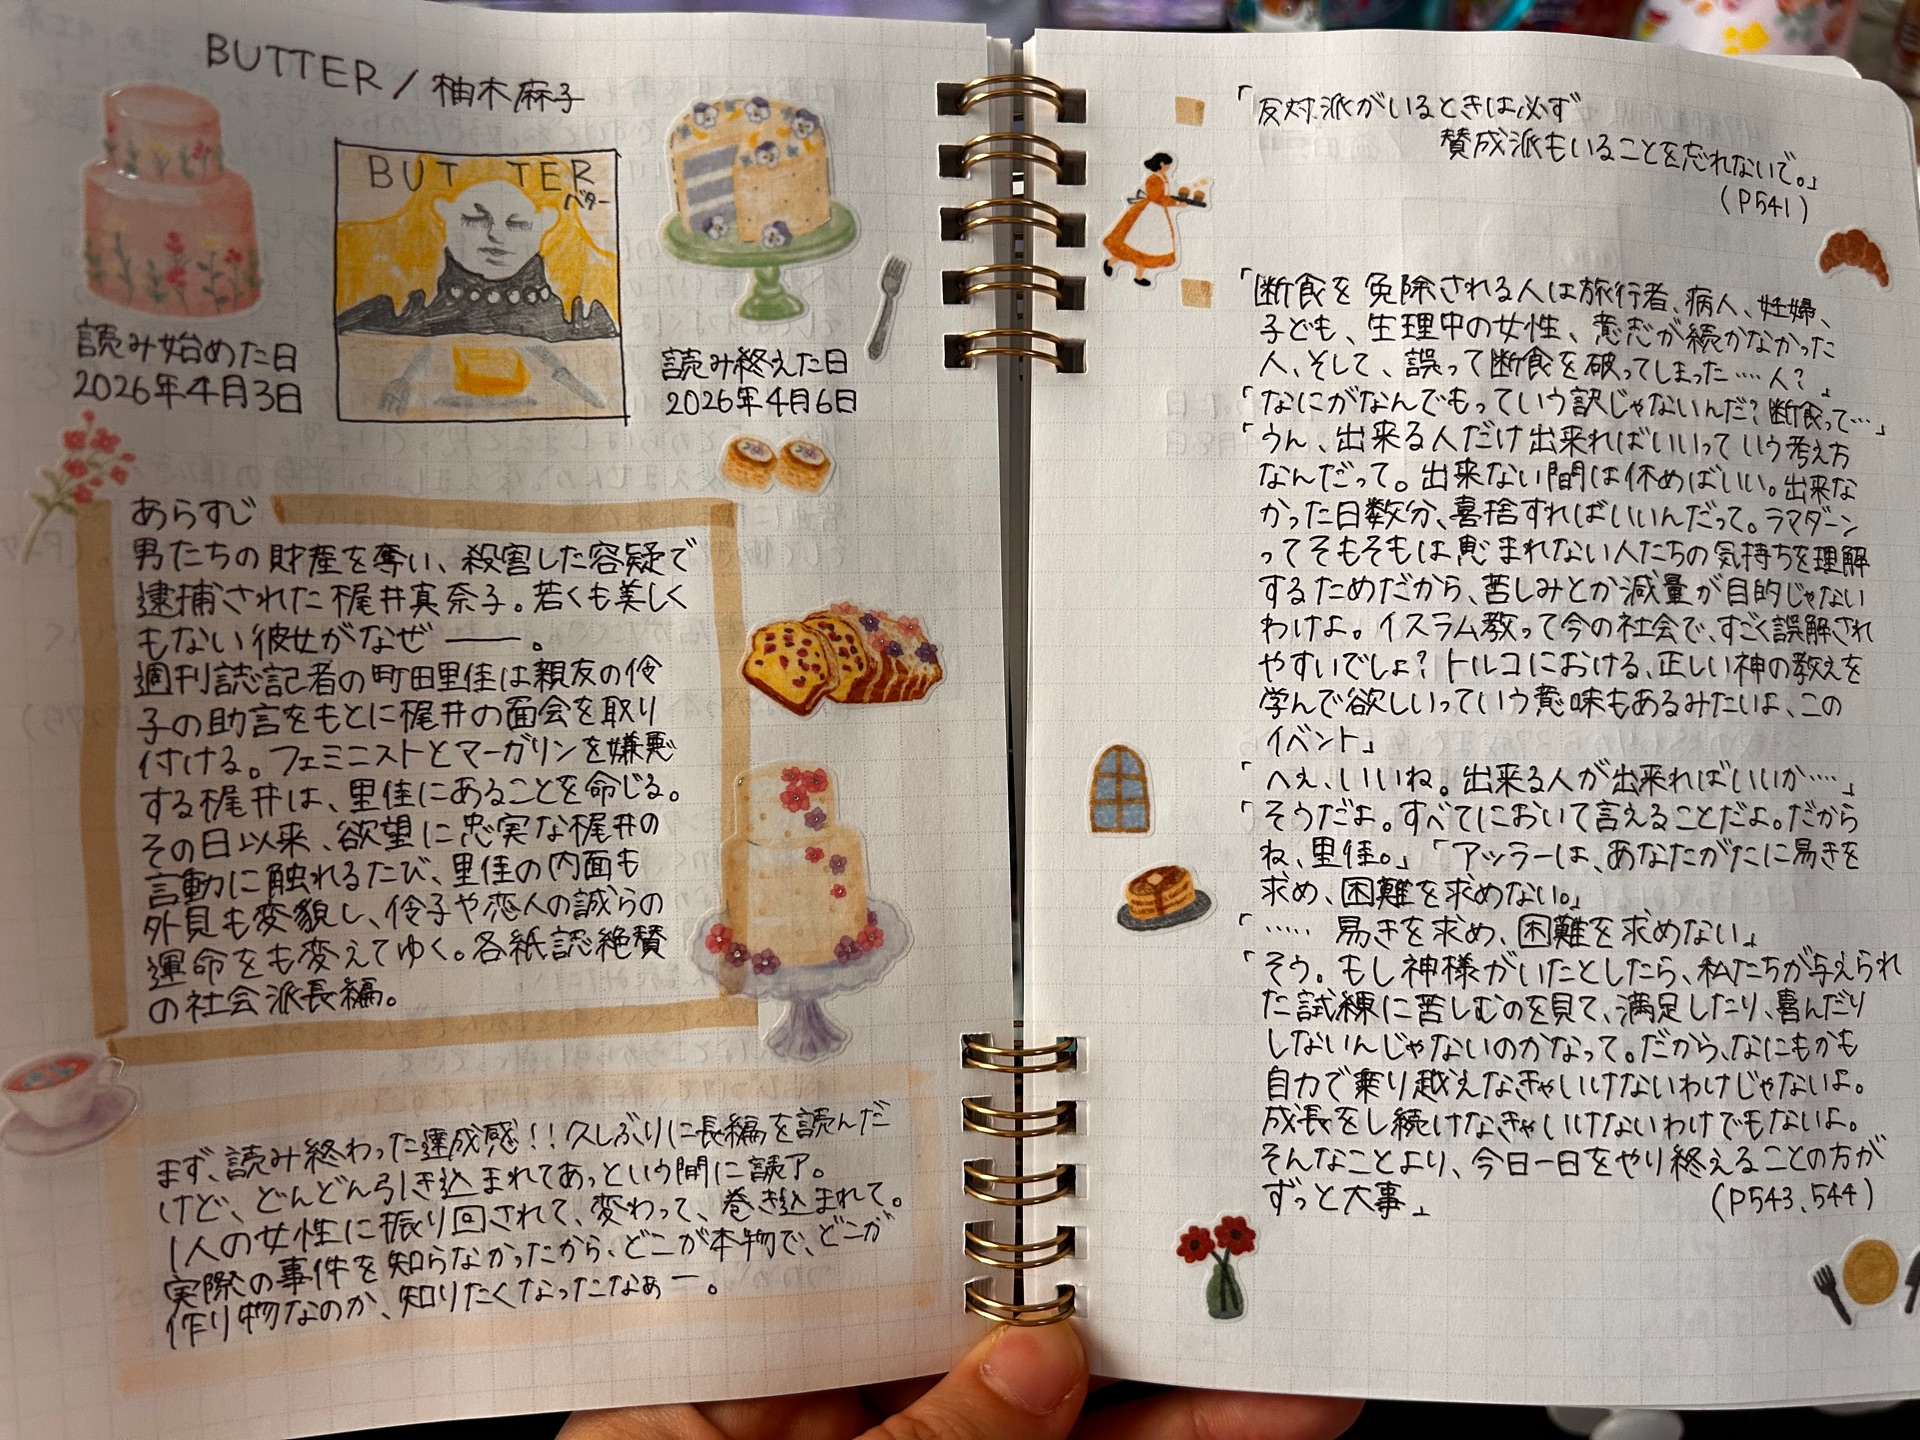 BUTTER / 柚木麻子
BUTTER
バター
読み始めた日
2026年4月3日
読み終えた日
2026年4月6日
あらすじ
男たちの財産を奪い、殺害した容疑で
逮捕された梶井真奈子。若くも美しく
もない彼女がなぜ――。
週刊誌記者の町田里佳は親友の伶
子の助言をもとに梶井の面会を取り
付ける。フェミニストとマーガリンを嫌悪
する梶井は、里佳にあることを命じる。
その日以来、欲望に忠実な梶井の
言動に触れるたび、里佳の内面も
外見も変貌し、伶子や恋人の誠らの
運命をも変えてゆく。各紙誌絶賛
の社会派長編。
まず、読み終わった達成感!!久しぶりに長編を読んだ
けど、どんどん引き込まれてあっという間に読了。
1人の女性に振り回されて、変わって、巻き込まれて。
実際の事件を知らなかったから、どこが本物で、どこが
作り物なのか、知りたくなったなぁー。
「反対派がいるときは必ず
賛成派もいることを忘れないで。」
(P541)
「断食を免除される人は旅行者、病人、妊婦、
子ども、生理中の女性、意志が続かなかった
人、そして、誤って断食を破ってしまった‥‥人?」
「なにがなんでもっていう訳じゃないんだ?断食って…」
「うん、出来る人だけ出来ればいいっていう考え方
なんだって。出来ない間は休めばいい。出来な
かった日数分、喜捨すればいいんだって。ラマダーン
ってそもそもは恵まれない人たちの気持ちを理解
するためだから、苦しみとか減量が目的じゃない
わけよ。イスラム教って今の社会で、すごく誤解され
やすいでしょ?トルコにおける、正しい神の教えを
学んで欲しいっていう意味もあるみたいよ、この
イベント」
「へぇ、いいね。出来る人が出来ればいいか‥‥」
「そうだよ。すべてにおいて言えることだよ。だから
ね、里佳。」「アッラーは、あなたがたに易きを
求め、困難を求めない。」
「‥‥‥ 易きを求め、困難を求めない」
「そう。もし神様がいたとしたら、私たちが与えられ
た試練に苦しむのを見て、満足したり、喜んだり
しないんじゃないのかなって。だから、なにもかも
自力で乗り越えなきゃいけないわけじゃないよ。
成長をし続けなきゃいけないわけでもないよ。
そんなことより、今日一日をやり終えることの方が
ずっと大事」
(P543、544)